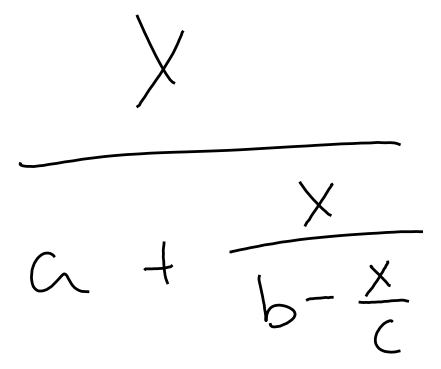 \frac{x}{a + \frac{x}{b - \frac{x}{c}}}